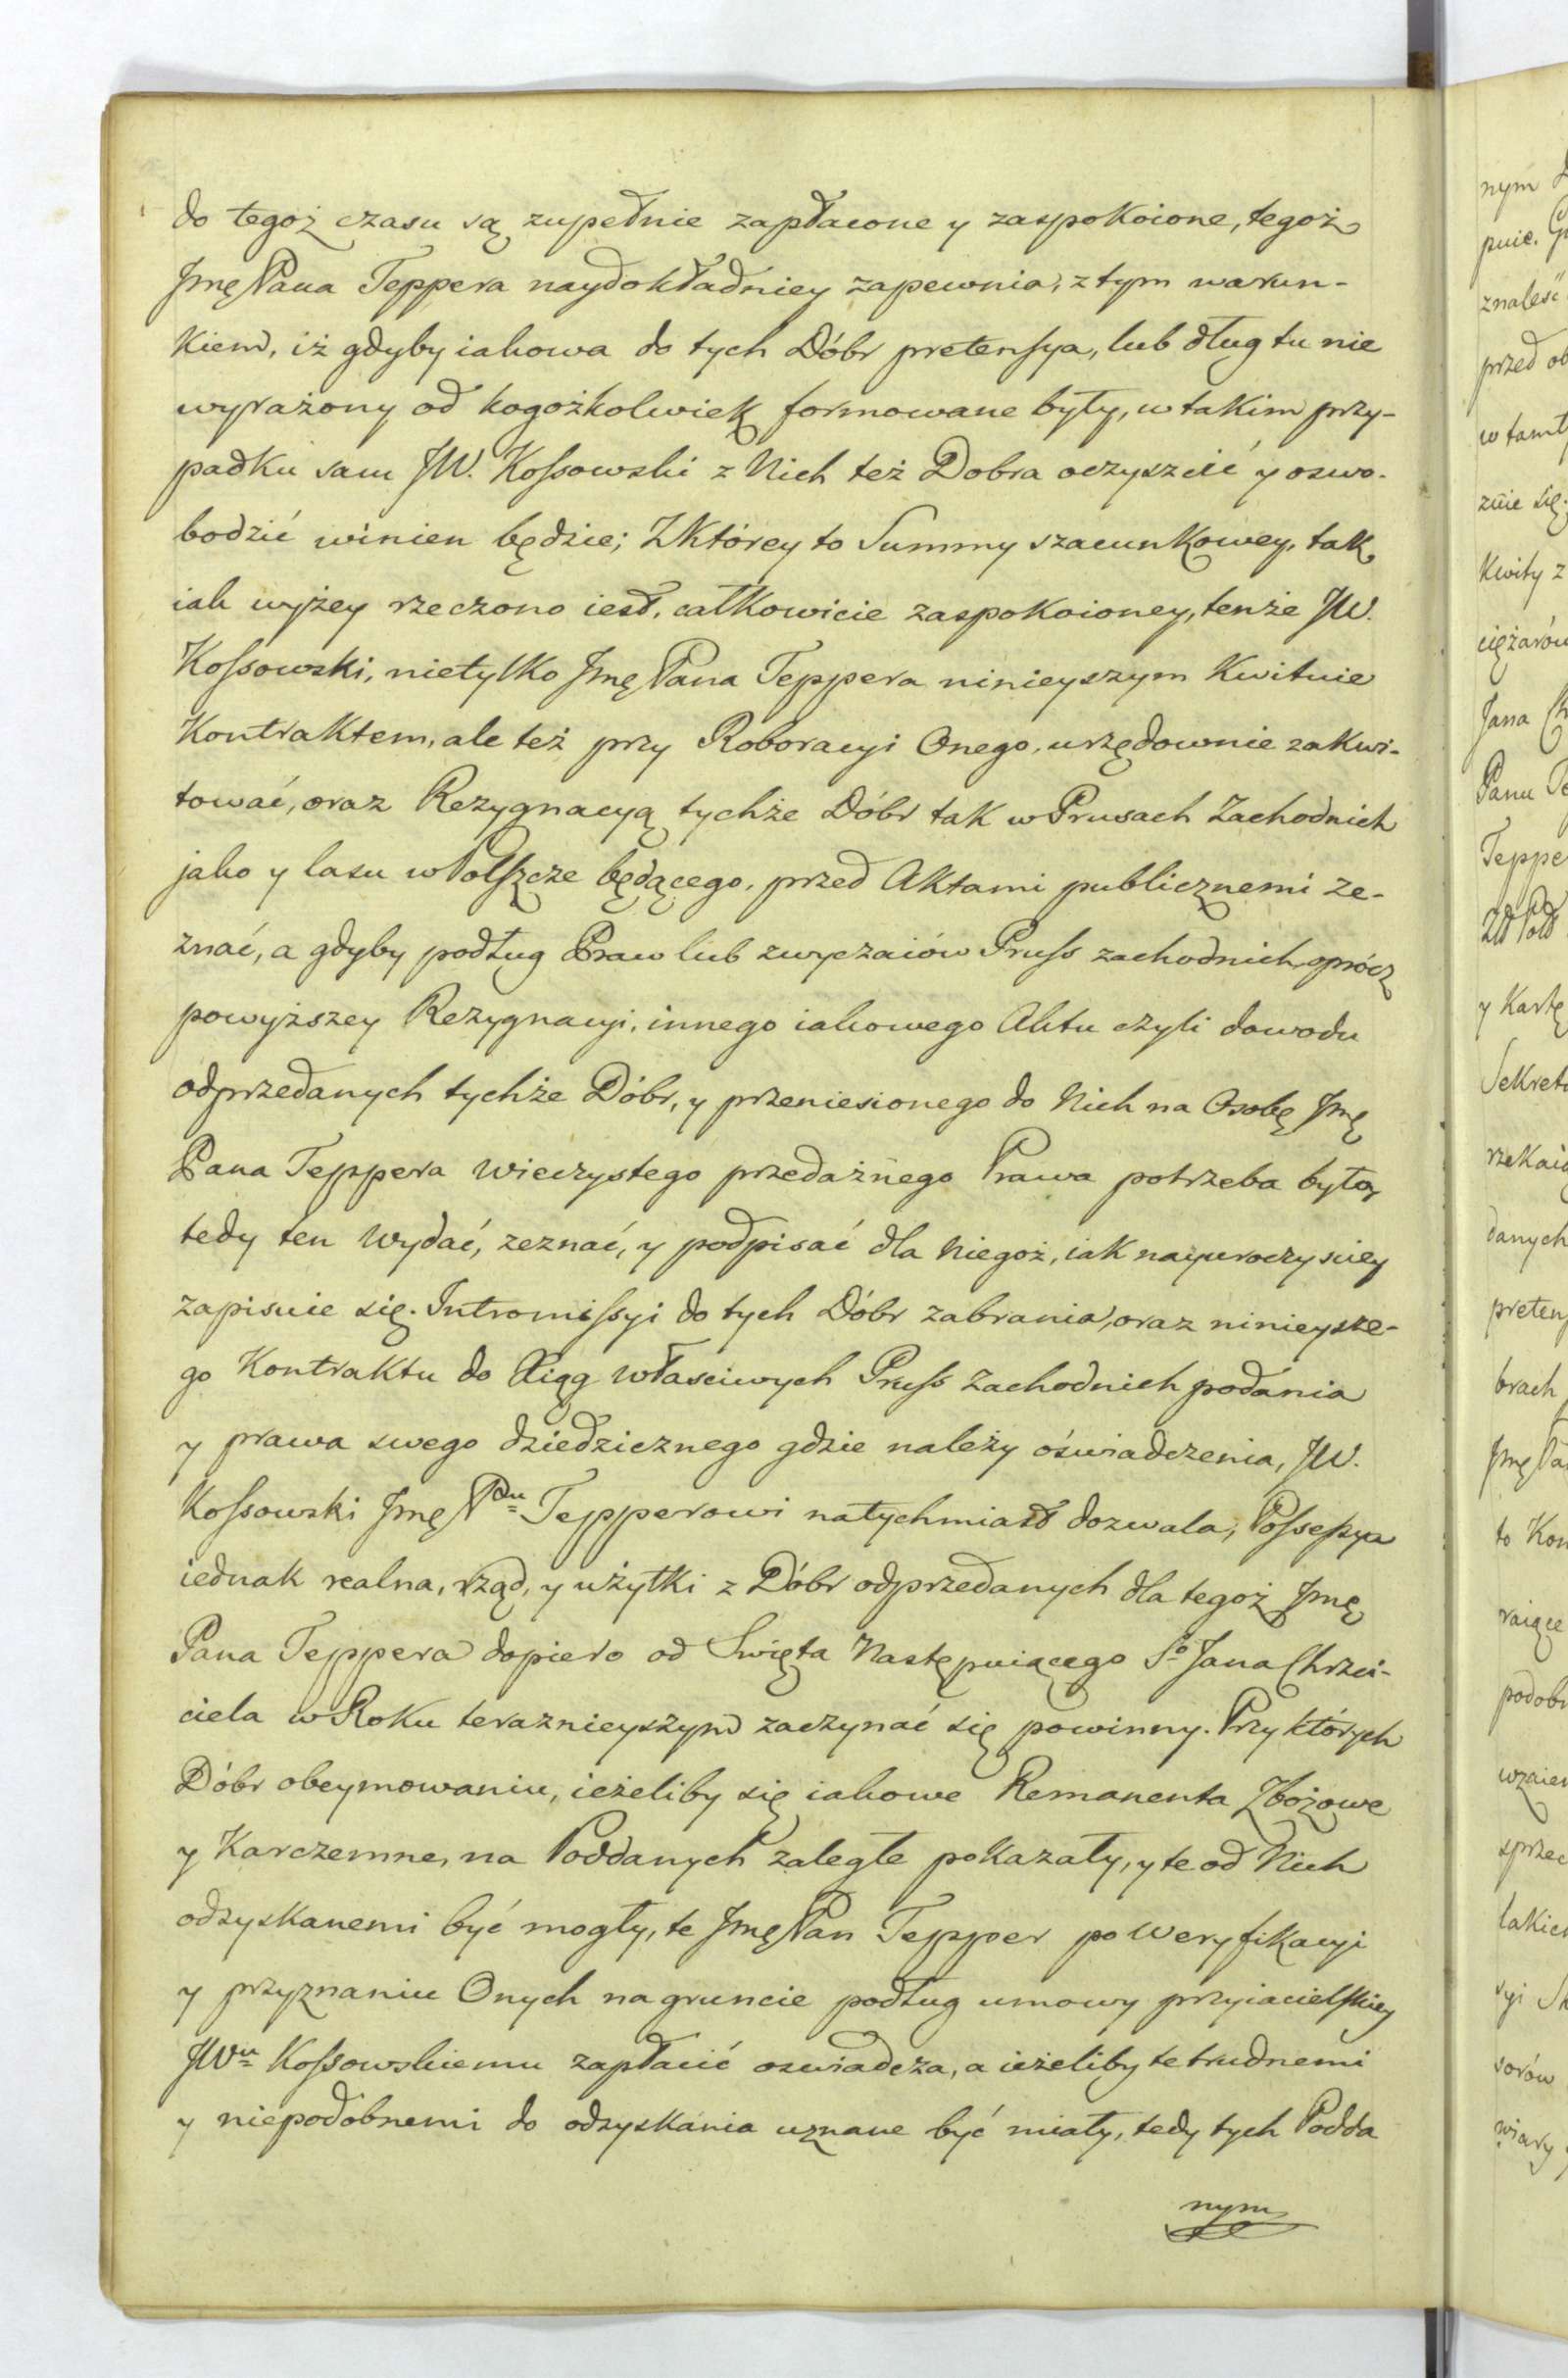 do tegoż czasu są zupełnie zapłacone y zaspokoione, tegoż
Jmę Pana Teppera naydokładniey zapewnia, z tym warun-
kiem, iż gdyby iakowa do tych Dóbr pretensya, lub dług tu nie
wyrażony od kogożkolwiek formowane były, w takim przy-
padku sam JW. Kossowski z Nich też Dobra oczyszcić y oswo-
bodzić winien będzie; Z którey to Summy szacunkowey, tak
iak wyżey rzeczono iest, całkowicie zaspokoioney, tenże JW.
Kossowski, nietylko Jmę Pana Teppera ninieyszym Kwituie
Kontraktem, ale też przy Roboracyi Onego, urzędownie zakwi-
tować, oraz Rezygnacyą tychże Dóbr tak w Prusach Zachodnich
jako y lasu w Polszcze będącego, przed Aktami publicznemi ze-
znać, a gdyby podług Praw lub zwyczaiów Pruss zachodnich, oprócz
powyższey Rezygnacyi, innego iakowego Aktu czyli dowodu
odprzedanych tychże Dóbr, y przeniesionego do Nich na Osobę Jmę
Pana Teppera wieczystego przedażnego Prawa potrzeba było,
tedy ten wydać, zeznać, y podpisać dla Niegoż, iak nayuroczyściey
zapisuie się. Intromissyi do tych Dóbr zabrania, oraz ninieysze-
go Kontraktu do Xiąg właściwych Pruss Zachodnich podánia
y prawa swego dziedzicznego gdzie należy oświadczenia, JW.
Kossowski Jmę Pdu Tepperowi natychmiast dozwala, Possessya
iednak realna, rząd, y użytki z Dóbr odprzedanych dla tegoż Jmę
Pana Teppera dopiero od Święta Następuiącego So Jana Chrzci-
ciela w Roku teraznieyszym zaczynać się powinny. Przy których
Dóbr obeymowaniu, ieżeliby się iakowe Remanenta Zbożowe
y Karczemne, na Poddanych zaległe pokazały, y te od Nich
odzyskanemi być mogły, te Jmę Pan Tepper po weryfikacyi
y przyznaniu Onych na gruncie podług umowy przyiacielskiey
JWu Kossowskiemu zapłacić oswiadcza, a ieżeliby te trudnemi
y niepodobnemi do odzyskánia uznane być miały, tedy tych Podda
nym